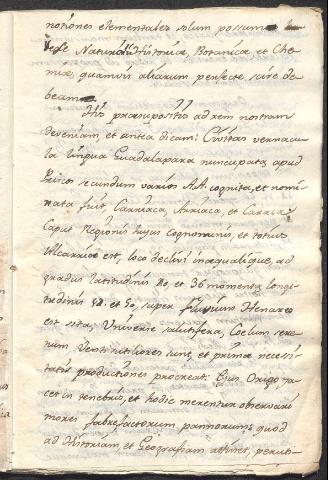 notiones elementales solum possum
vese Naturali Historiæ, Botanicæ, et Che
miæ quamvis aliarum perfecte scire de
beam
His præsupositis ad rem nostram
deveniam, et antea dicam: Civitas vernacu
la lingua Guadalaxara nuncupata, apud
Priscos secundum varios A.A. cognita, et nomi
nata fuit Carriaca, Arriaca, et Caraca
Caput Regionis hujus cognominis, et totius
Alcarriæ est, loco declivi inæqualique, ad
gradus latitudinis 40, et 36 momenta, longi
tudinis et 50, super fluvium Henares
est sita, Universe salutifera, Coelum sere
num, Venti utiliores sunt, et primæ necessi
tatis productiones procreat: Ejus Origo ja
cet in tenebris, et hodie merentur observari
mores fabrefactorum pannorum; quod
ad Historiam, et Geografiam attinet, peruti-